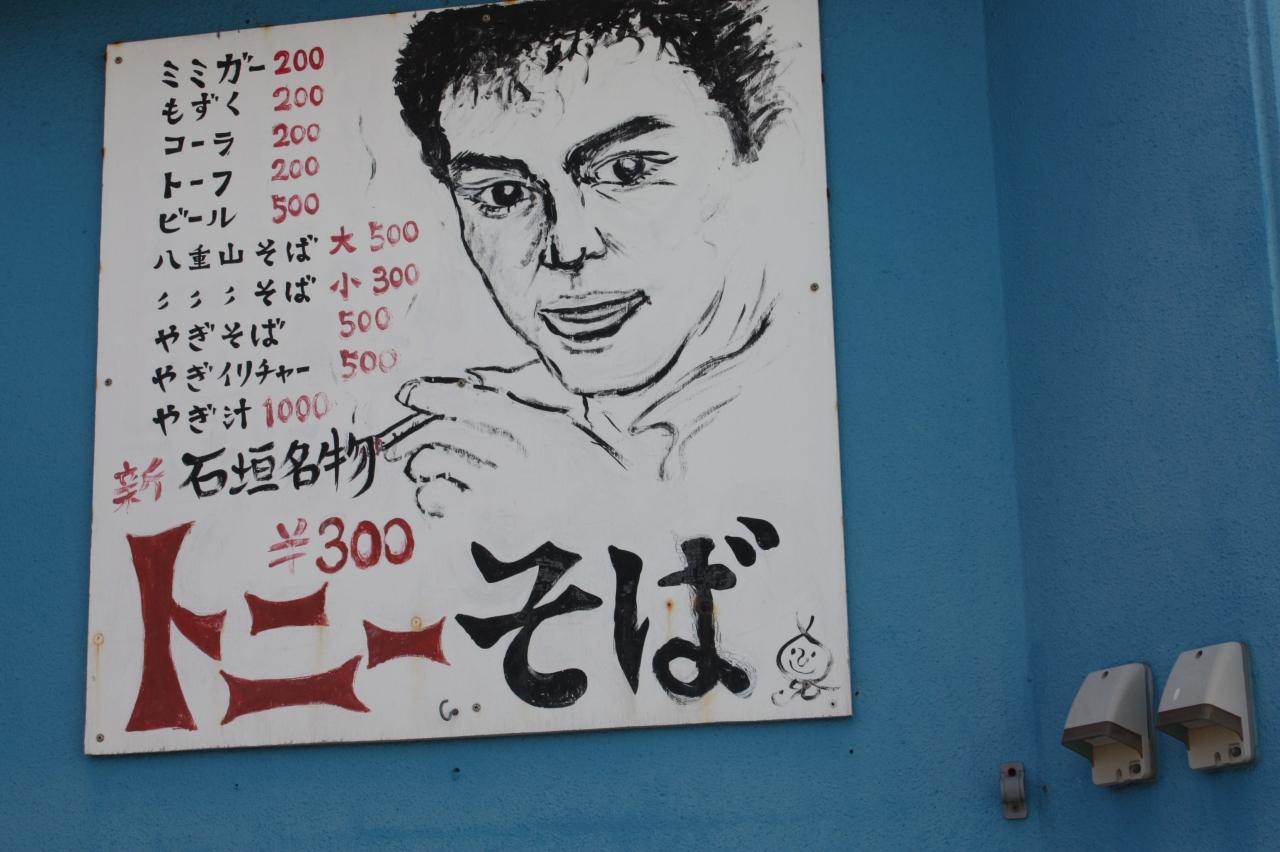 ミミガー 200
もずく 200
コーラ 200
トーフ 200
ビール 500
八重山そば 大 500
〃 〃 〃 そば 小 300
やぎそば 500
やぎイリチャー 500
やぎ汁 1000
新 石垣名物
¥300
トニーそば